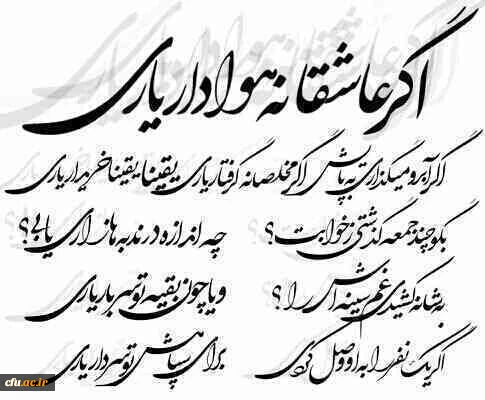 اگر عاشقانه هوادار یاری
اگر آبرو میگذاری به پایش اگر مخلصانه گرفتار یاری یقینا یقینا خریدار یاری
بگو چند جمعه گذشتی ز خوابت؟ چه اندازه در ندبه ها زاری یابی؟
به شانه کشیدی غم سینه اش را؟ و یا چون بقیه تو سربار یاری
اگر یک نفر را به او وصل کردی برای سپاهش تو سردار یاری
cfu.ac.ir